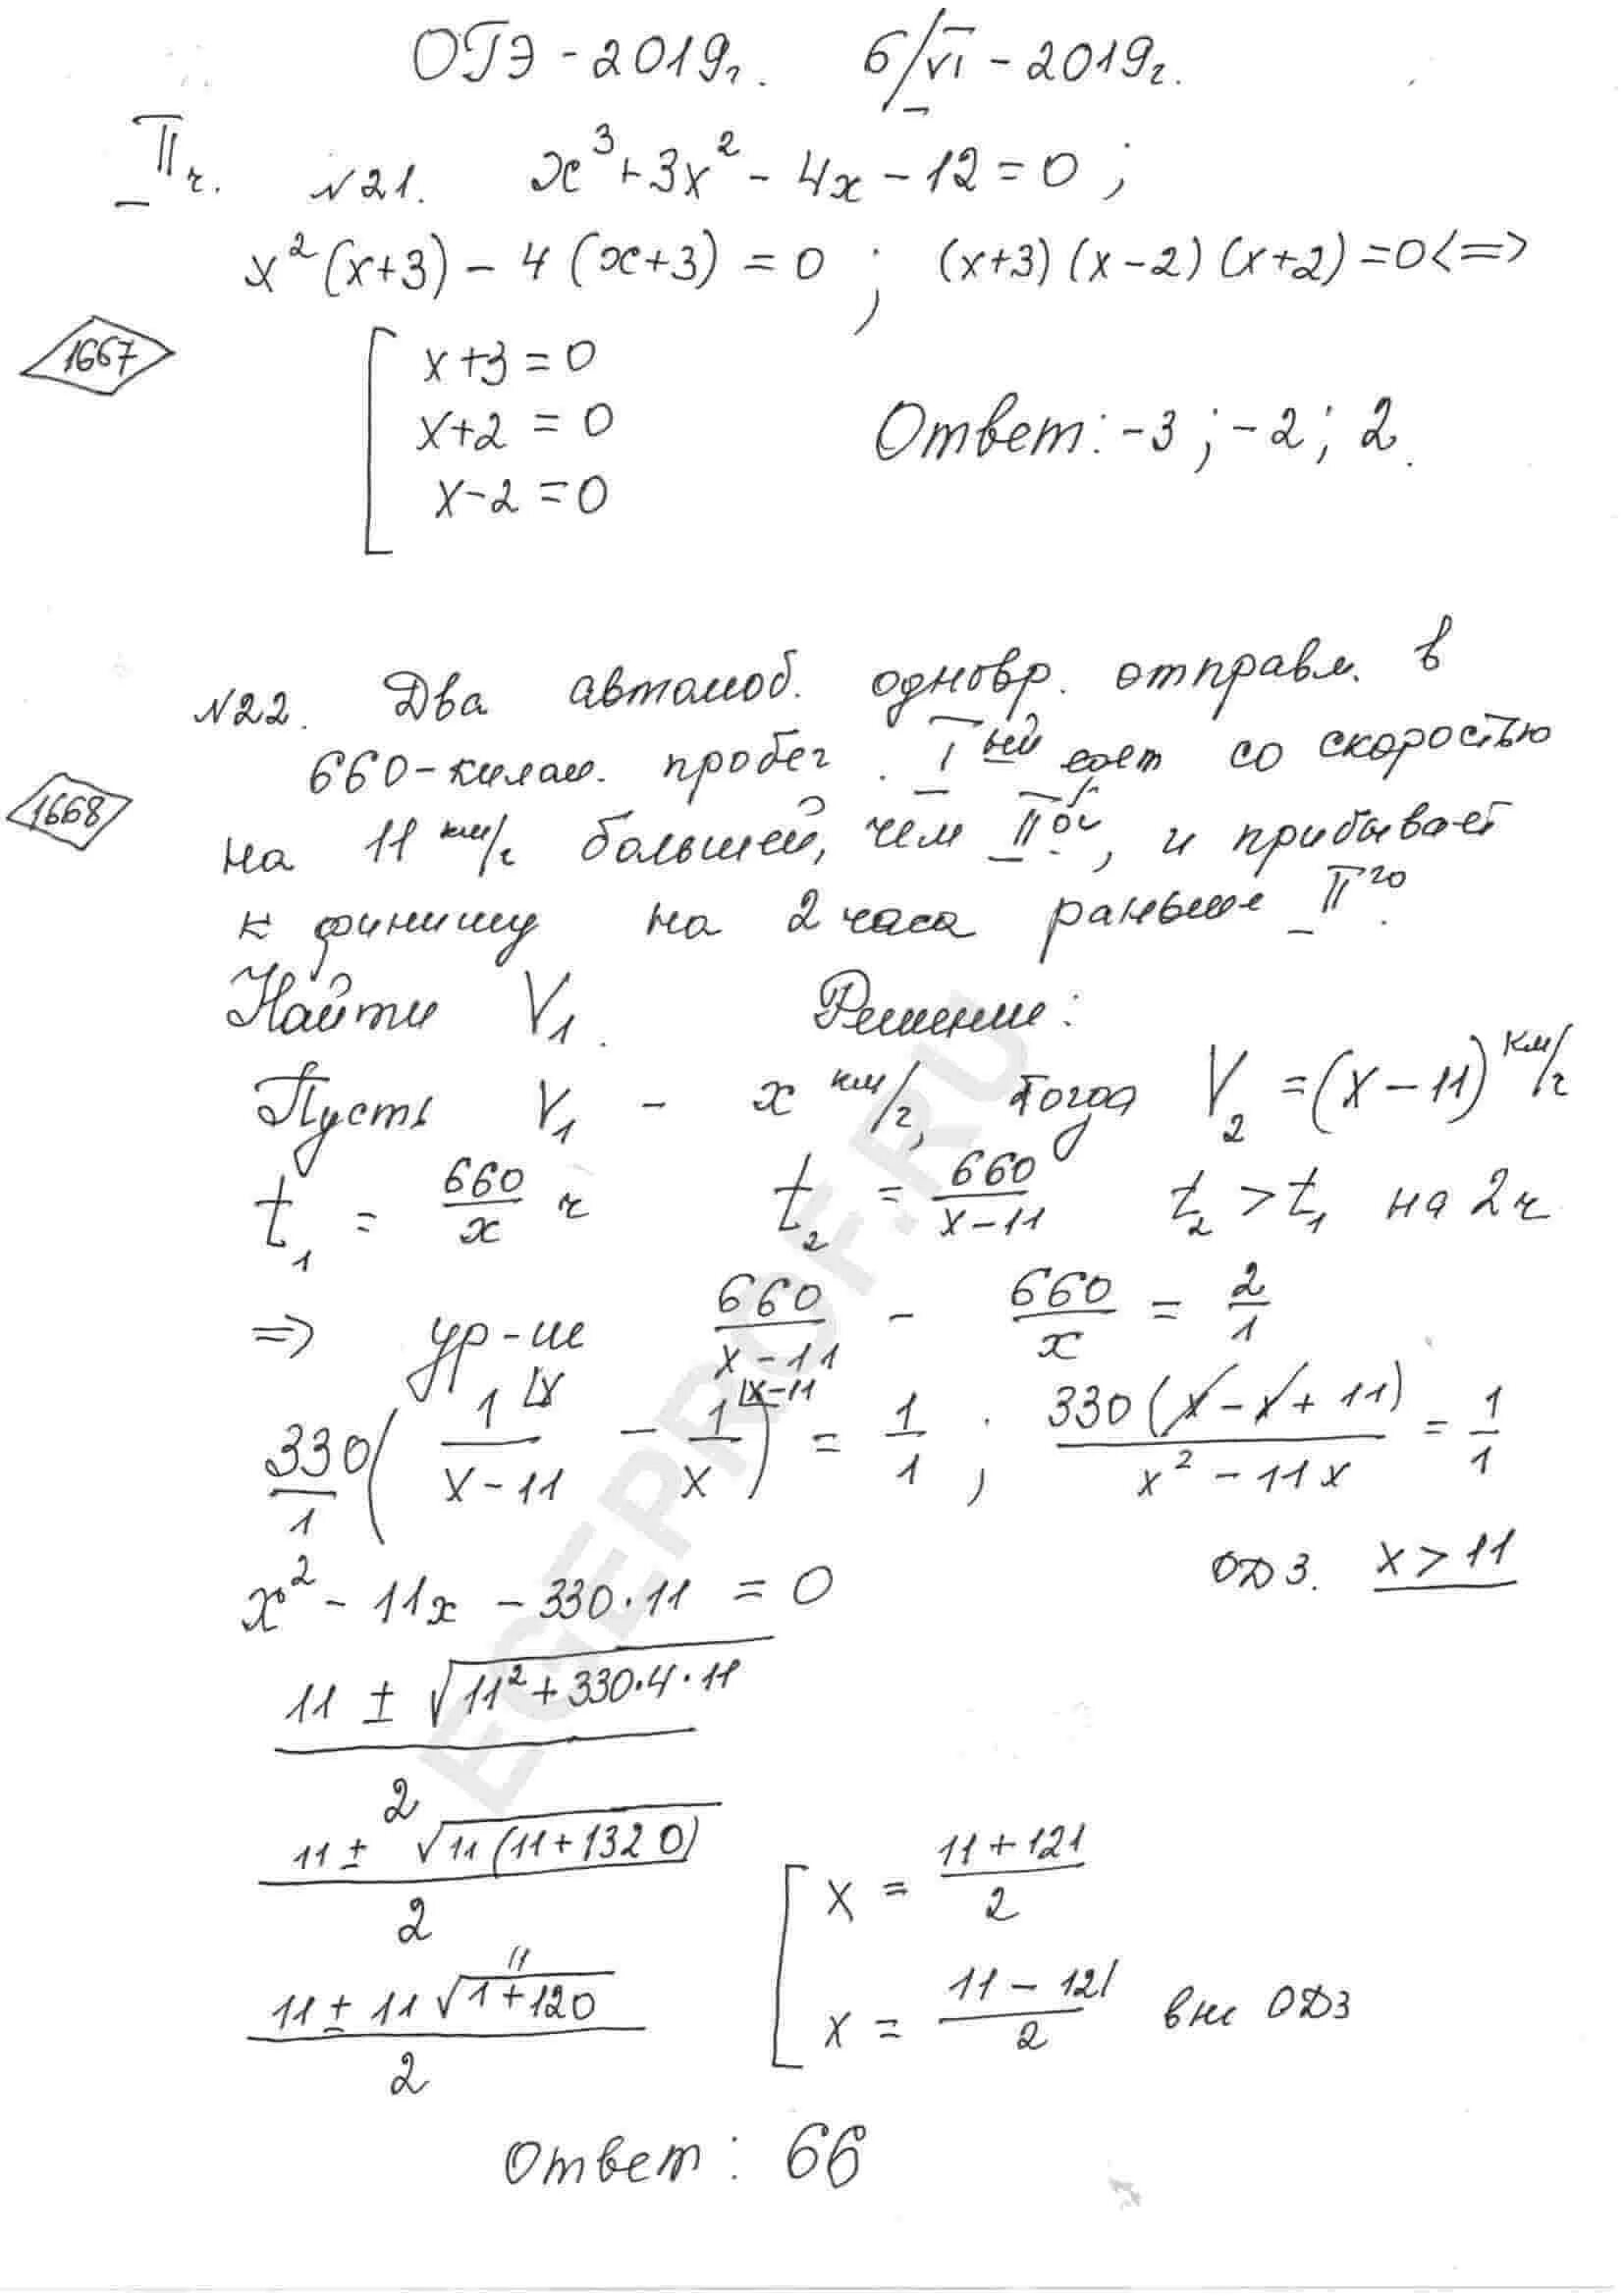 ОГЭ - 2019г. 6/VI - 2019г.
II ч. №21. x³ + 3x² - 4x - 12 = 0 ;
x²(x+3) - 4(x+3) = 0 ; (x+3)(x-2)(x+2) = 0 <=>
1667
x+3 = 0
x+2 = 0
x-2 = 0
Ответ: -3 ; -2 ; 2.
№22. Два автомоб. одновр. отправл. в
660-килом. пробег. I ый едет со скоростью
1668
на 11 км/ч большей, чем II ой, и прибывает
к финишу на 2 часа раньше II го.
Найти V₁. Решение:
Пусть V₁ - x км/ч, тогда V₂ = (x - 11) км/ч
t₁ = 660/x ч t₂ = 660/(x-11) t₂ > t₁ на 2 ч
=> ур-ие 660/(x-11) - 660/x = 2/1
330/1 (1/(x-11) ⌊x - 1/x ⌊x-11) = 1/1 ; 330(x - x + 11)/(x² - 11x) = 1/1
x² - 11x - 330·11 = 0 ОДЗ. x > 11
(11 ± √(11² + 330·4·11))/2
(11 ± √(11(11+1320)))/2
x = (11 + 121)/2
(11 ± 11√(1+120))/2
11
x = (11 - 121)/2 вне ОДЗ
Ответ: 66
EGEPROF.RU